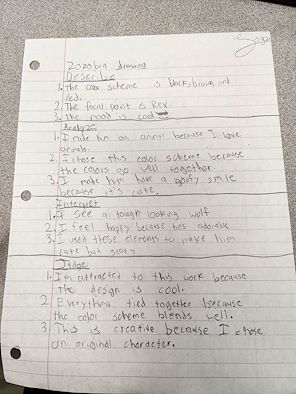 Zozobra drawing
Describe
1. the color scheme is black, brown, and
red.
2. The focal point is Rex.
3. the mood is cool
Analyze
1. I made him an animal because I love
animals.
2. I chose this color scheme because
the colors go well together.
3. I made him have a goofy smile
because it's cute.
Interpret
1. I see a tough looking wolf
2. I feel happy because hes adorable
3. I used these elements to make him
cute but scary
Judge
1. I'm attracted to this work because
the design is cool.
2. Everything tied together because
the color scheme blends well.
3. This is creative because I chose
an original character.